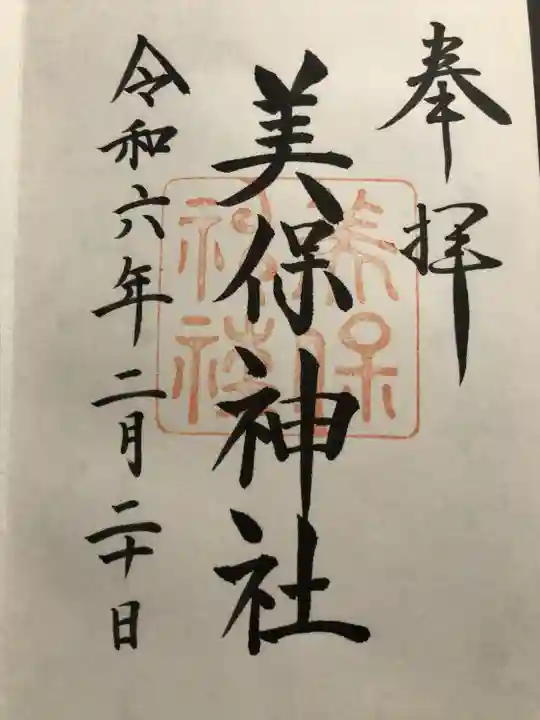 奉拝
美保神社
令和六年二月二十日
美保
神社